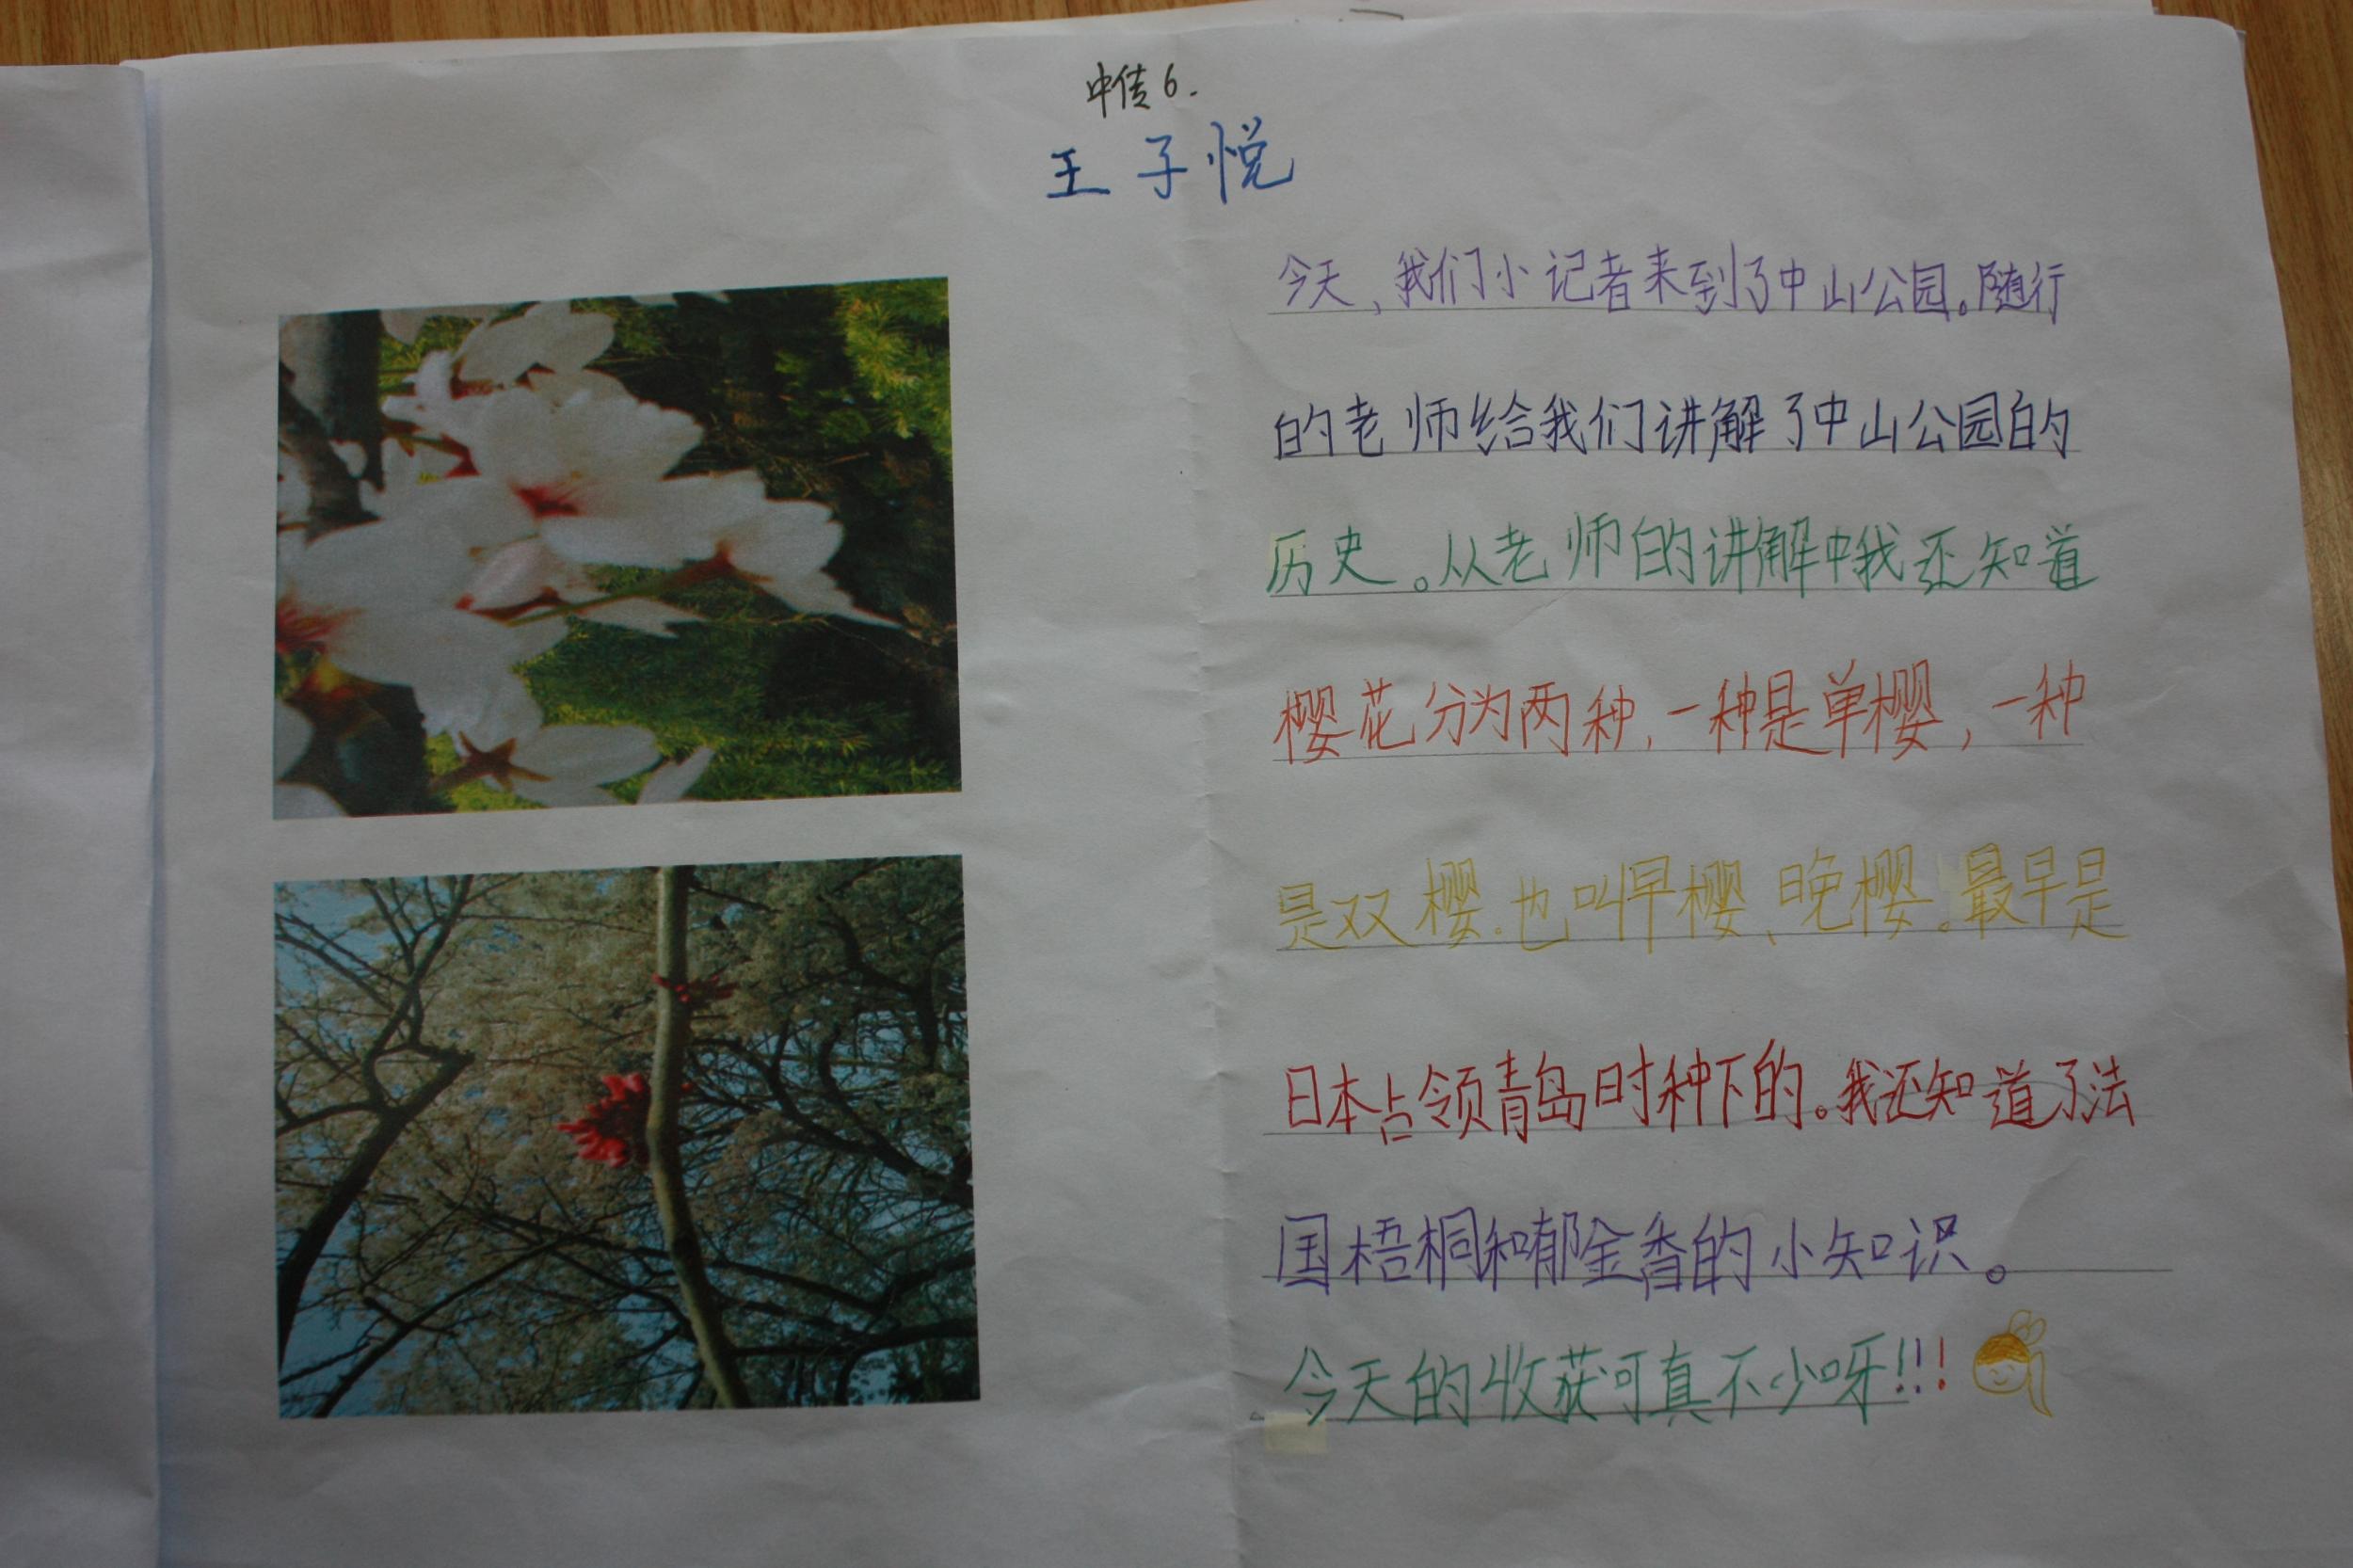 中传6.
王子悦
今天,我们小记者来到了中山公园。随行
的老师给我们讲解了中山公园的
历史。从老师的讲解中我还知道
樱花分为两种,一种是单樱,一种
是双樱.也叫早樱、晚樱。最早是
日本占领青岛时种下的。我还知道了法
国梧桐和郁金香的小知识。
今天的收获可真不少呀!!!